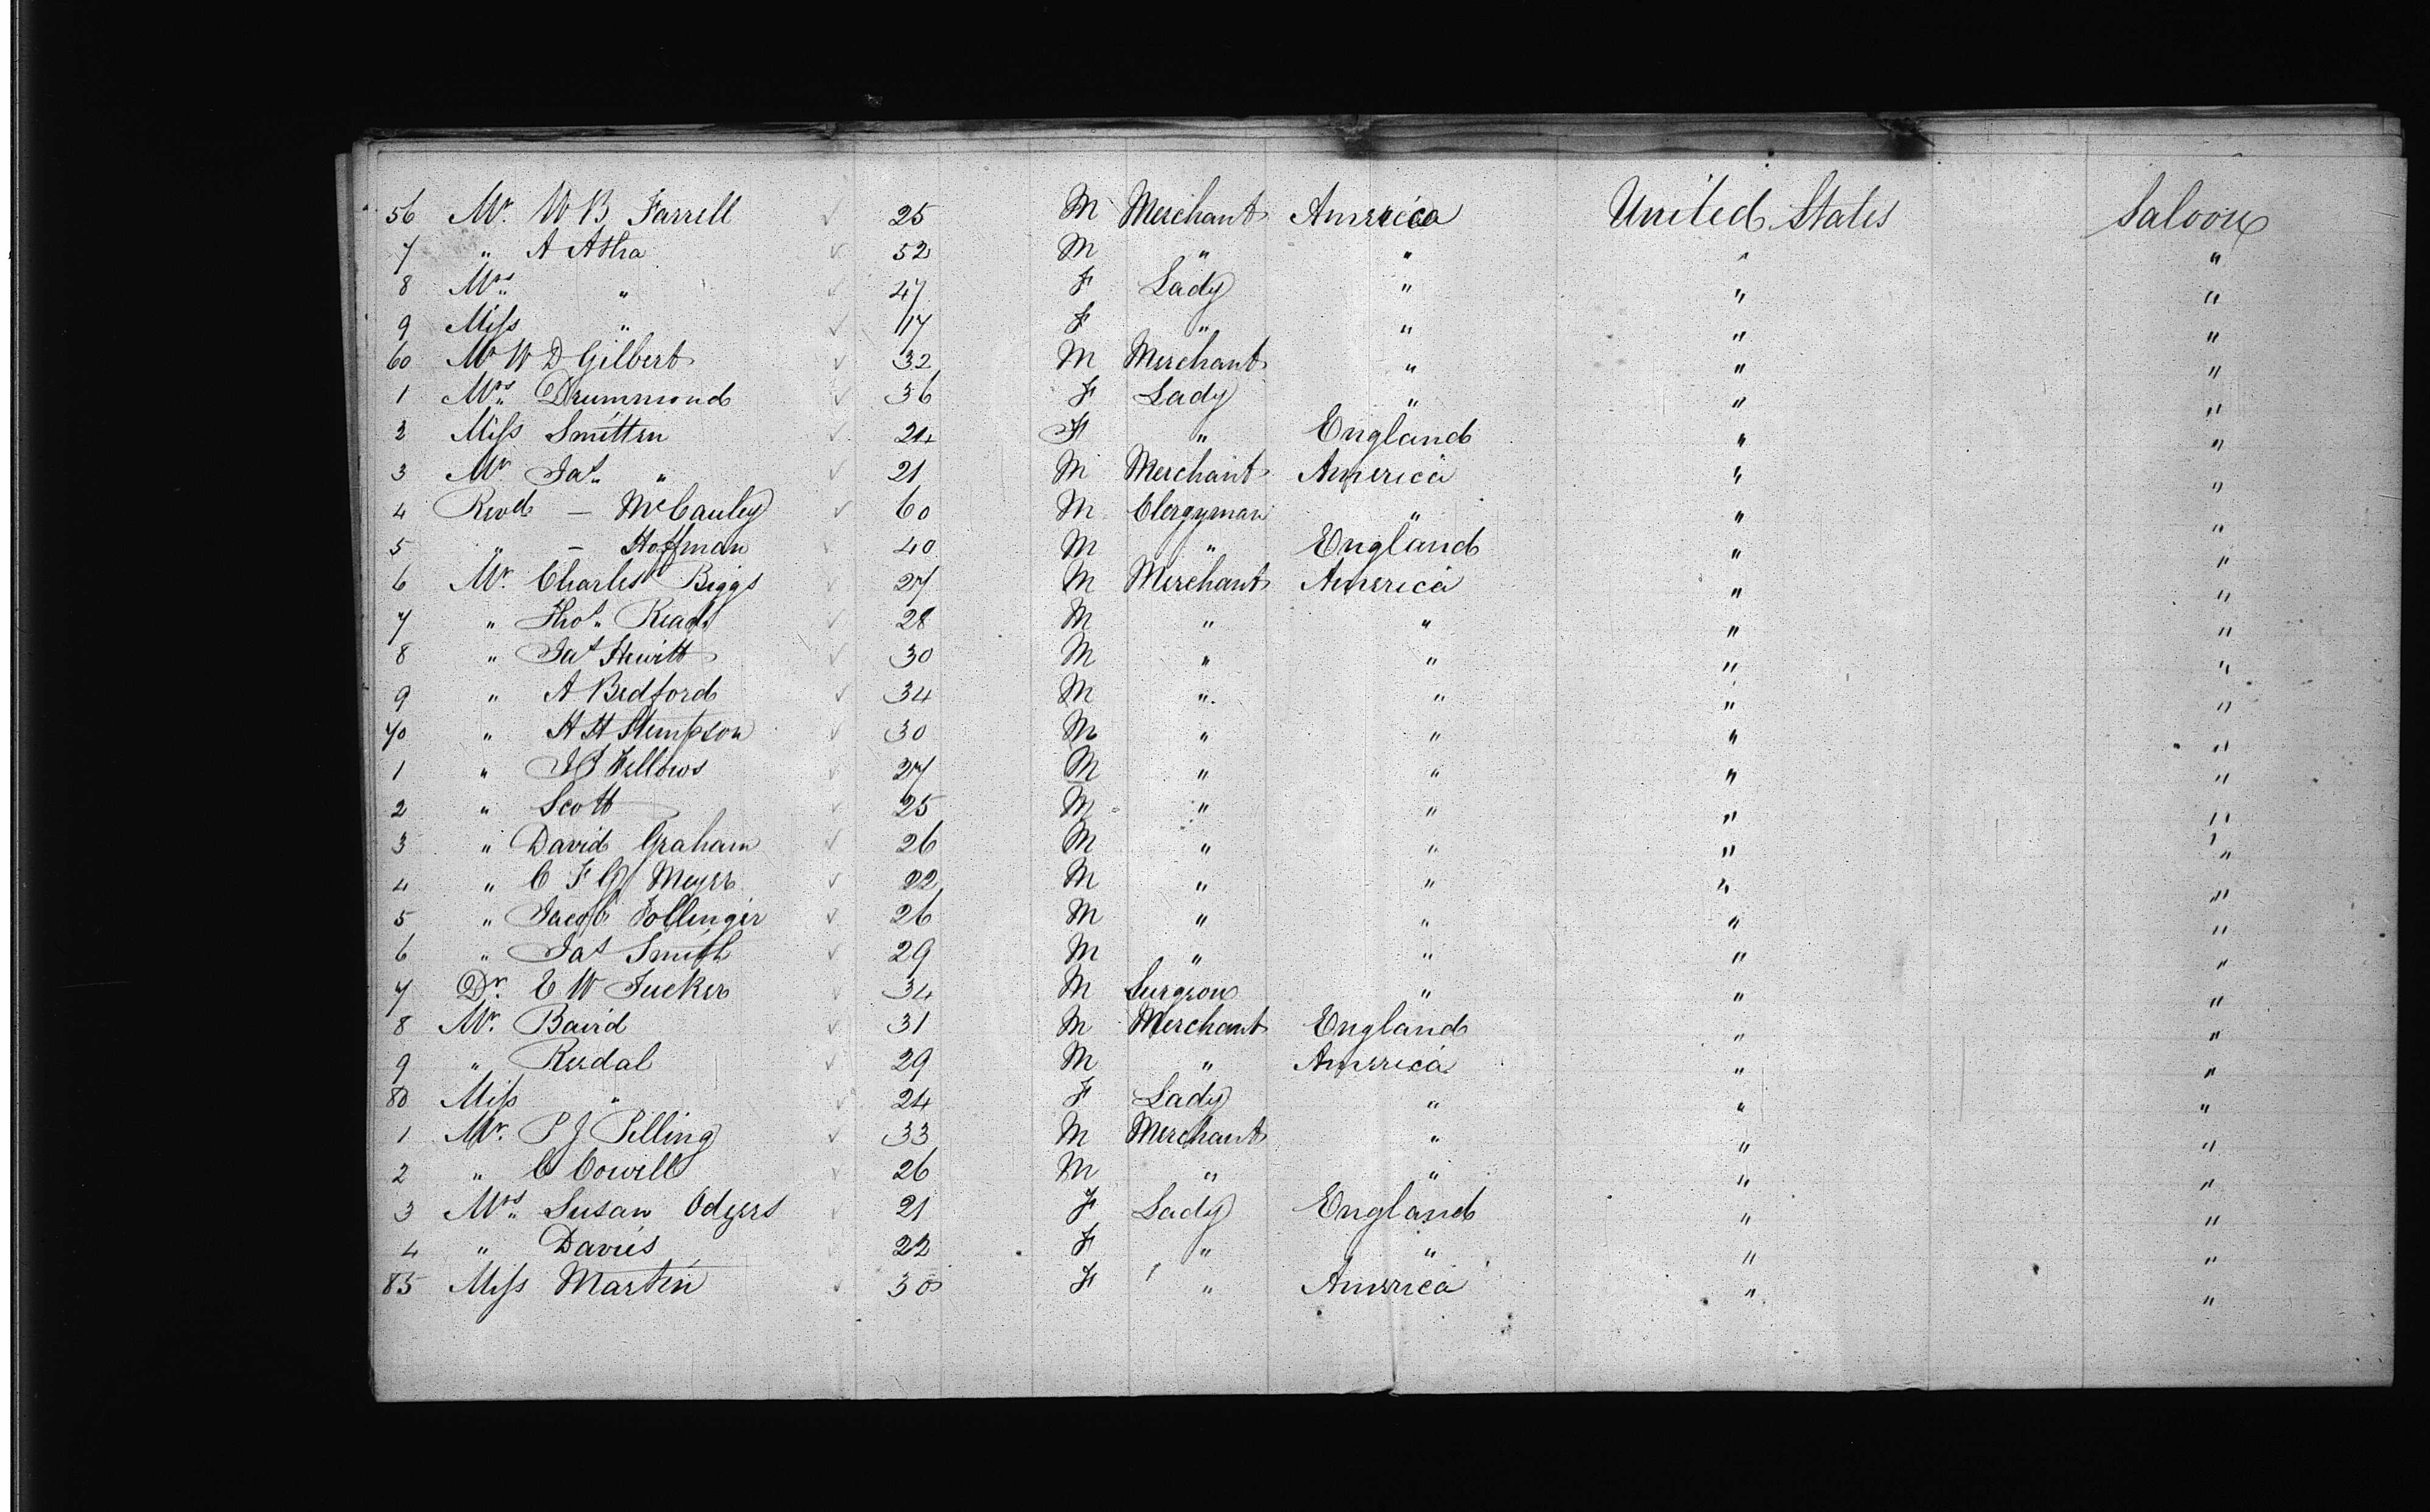 56 Mr. W B Farrell 25 M Merchant America United States Saloon
7 " A Atha 52 M " " " "
8 Mrs. " 47 F Lady " " "
9 Miss " 17 F " " " "
60 Mr W D Gilbert 32 M Merchant " " "
1 Mrs. Drummond 36 F Lady " " "
2 Miss Smitten 24 F " England " "
3 Mr Jas. " 21 M Merchant America " "
4 Revd — McCauley 60 M Clergyman " " "
5 " — Hoffman 40 M " England " "
6 Mr. Charles Biggs 27 M Merchant America " "
7 " Thos. Read 28 M " " " "
8 " Jas Hewitt 30 M " " " "
9 " A Bedford 34 M " " " "
70 " H H Stimpson 30 M " " " "
1 " Fellows 27 M " " " "
2 " Scott 25 M " " " "
3 " David Graham 26 M " " " "
4 " C F G Meyer 22 M " " " "
5 " Jacob 26 M " " " "
6 " Jas Smith 29 M " " " "
7 Dr. E W Tucker 34 M Surgeon " " "
8 Mr. Baird 31 M Merchant England " "
9 " Reedal 29 M " America " "
80 Miss " 24 F Lady " " "
1 Mr. P J Pilling 33 M Merchant " " "
2 " C Cowill 26 M " " " "
3 Mrs. Susan Odgers 21 F Lady England " "
4 " Davies 22 F " " " "
85 Miss Martin 30 F " America " "